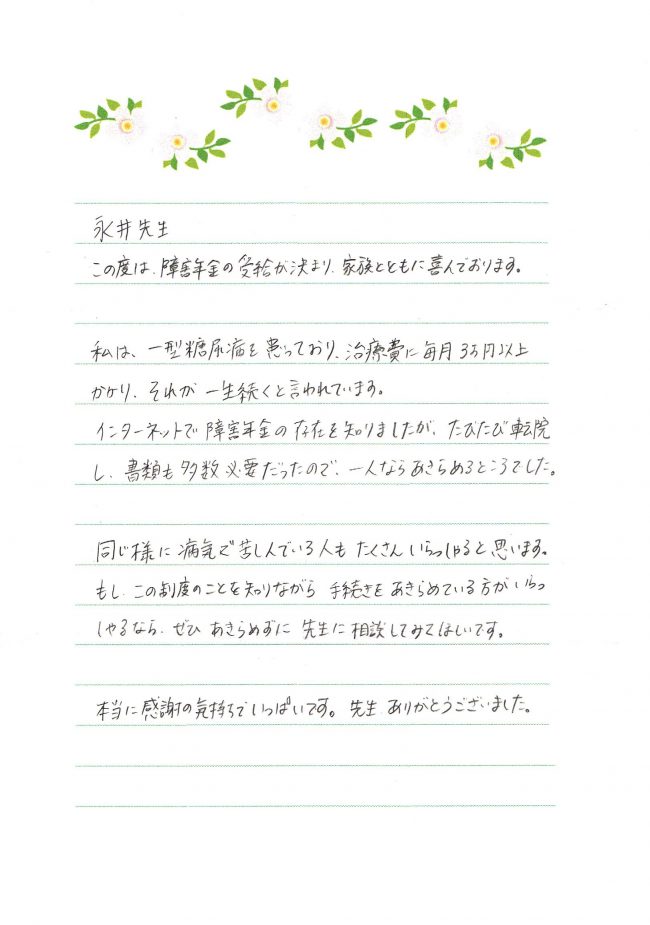 永井先生
この度は、障害年金の受給が決まり、家族とともに喜んでおります。
私は、一型糖尿病を患っており、治療費に毎月3万円以上
かかり、それが一生続くと言われています。
インターネットで障害年金の存在を知りましたが、たびたび転院
し、書類も多数必要だったので、一人ならあきらめるところでした。
同じ様に病気で苦しんでいる人もたくさんいらっしゃると思います。
もし、この制度のことを知りながら手続きをあきらめている方がいらっ
しゃるなら、ぜひあきらめずに先生に相談してみてほしいです。
本当に感謝の気持ちでいっぱいです。先生ありがとうございました。